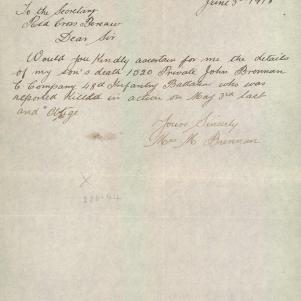 June 3rd 1918
To the Secretary
Red Cross Bereaw
Dear Sir
Would you kindly ascertain for me the details
of my son's death 1520 Private John Brennan
C Company 48th Infantry Battalion who was
reported Killed in action on May 3rd last
and Oblige
Yours Sincerely
Mrs M Brennan
X